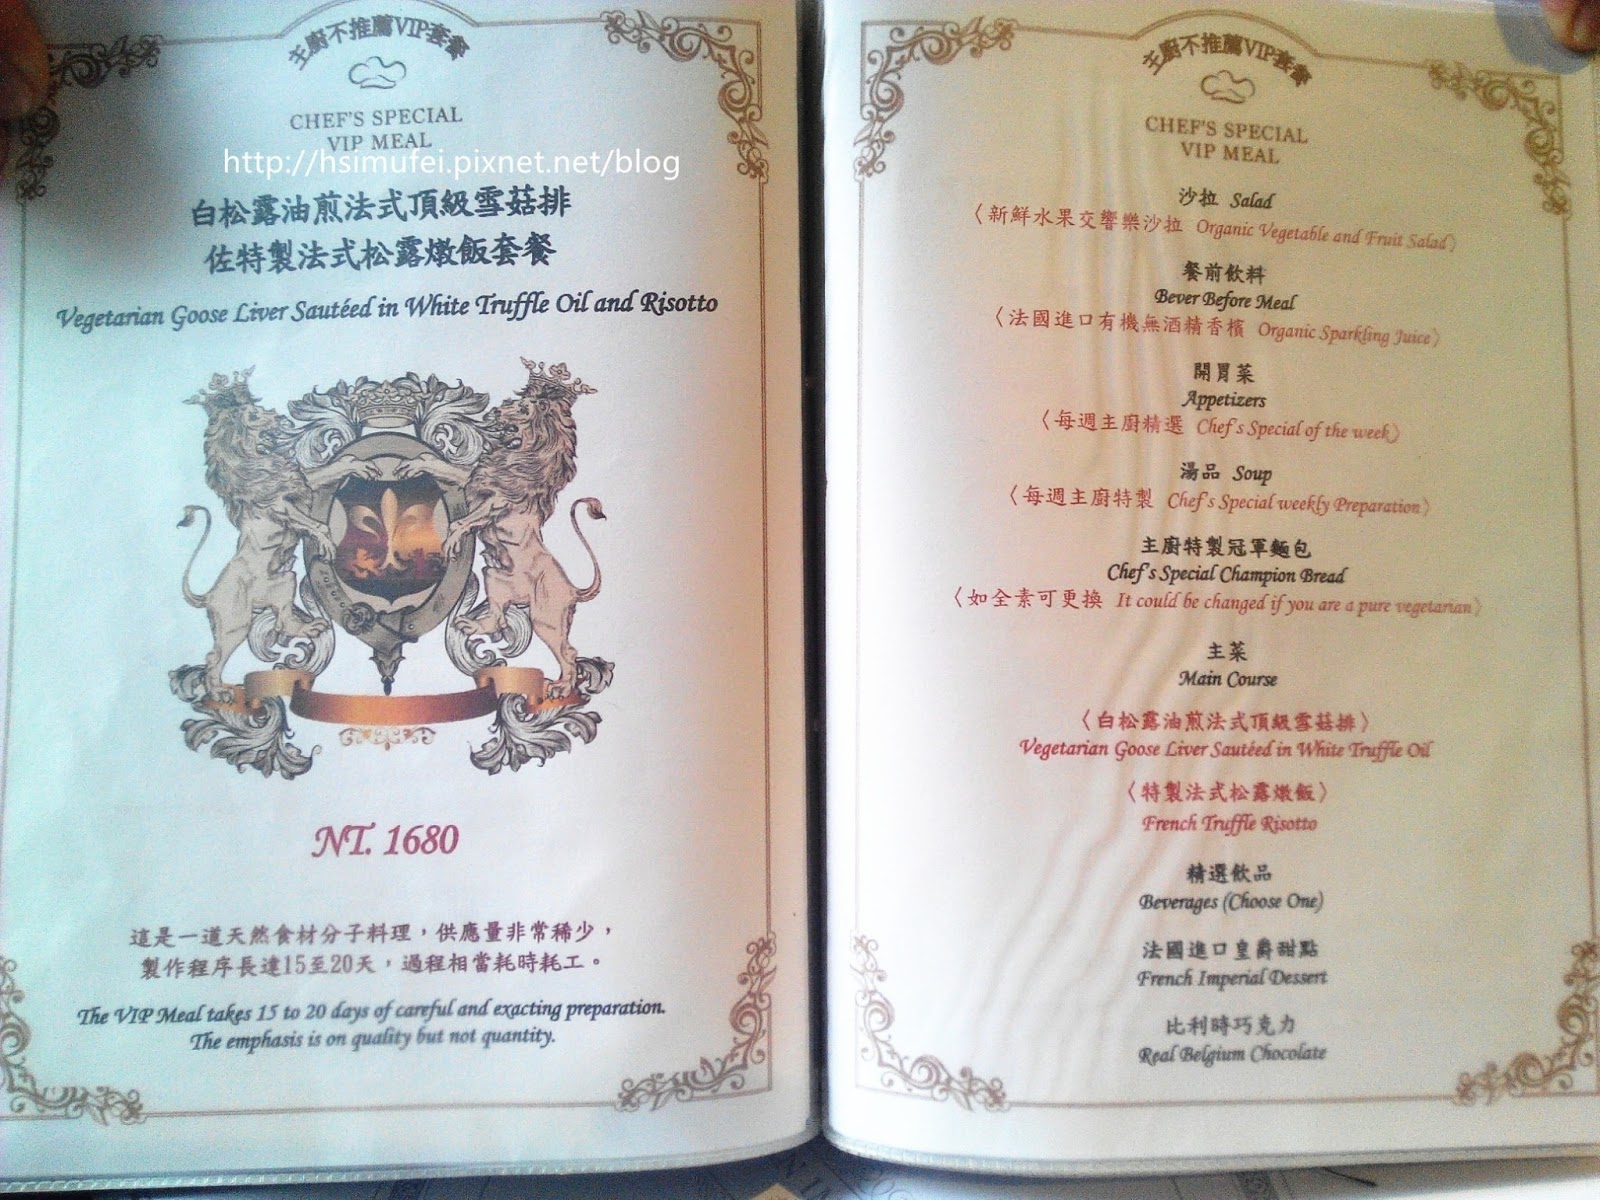 主廚不推薦VIP套餐
CHEF'S SPECIAL
VIP MEAL
http://hsimufei.pixnet.net/blog
白松露油煎法式頂級雪菇排
佐特製法式松露燉飯套餐
Vegetarian Goose Liver Sautéed in White Truffle Oil and Risotto
NT. 1680
這是一道天然食材分子料理，供應量非常稀少，
製作程序長達15至20天，過程相當耗時耗工。
The VIP Meal takes 15 to 20 days of careful and exacting preparation.
The emphasis is on quality but not quantity.
主廚不推薦VIP套餐
CHEF'S SPECIAL
VIP MEAL
沙拉 Salad
〈新鮮水果交響樂沙拉 Organic Vegetable and Fruit Salad〉
餐前飲料
Bever Before Meal
〈法國進口有機無酒精香檳 Organic Sparkling Juice〉
開胃菜
Appetizers
〈每週主廚精選 Chef's Special of the week〉
湯品 Soup
〈每週主廚特製 Chef's Special weekly Preparation〉
主廚特製冠軍麵包
Chef's Special Champion Bread
〈如全素可更換 It could be changed if you are a pure vegetarian〉
主菜
Main Course
〈白松露油煎法式頂級雪菇排〉
Vegetarian Goose Liver Sautéed in White Truffle Oil
〈特製法式松露燉飯〉
French Truffle Risotto
精選飲品
Beverages (Choose One)
法國進口皇爵甜點
French Imperial Dessert
比利時巧克力
Real Belgium Chocolate